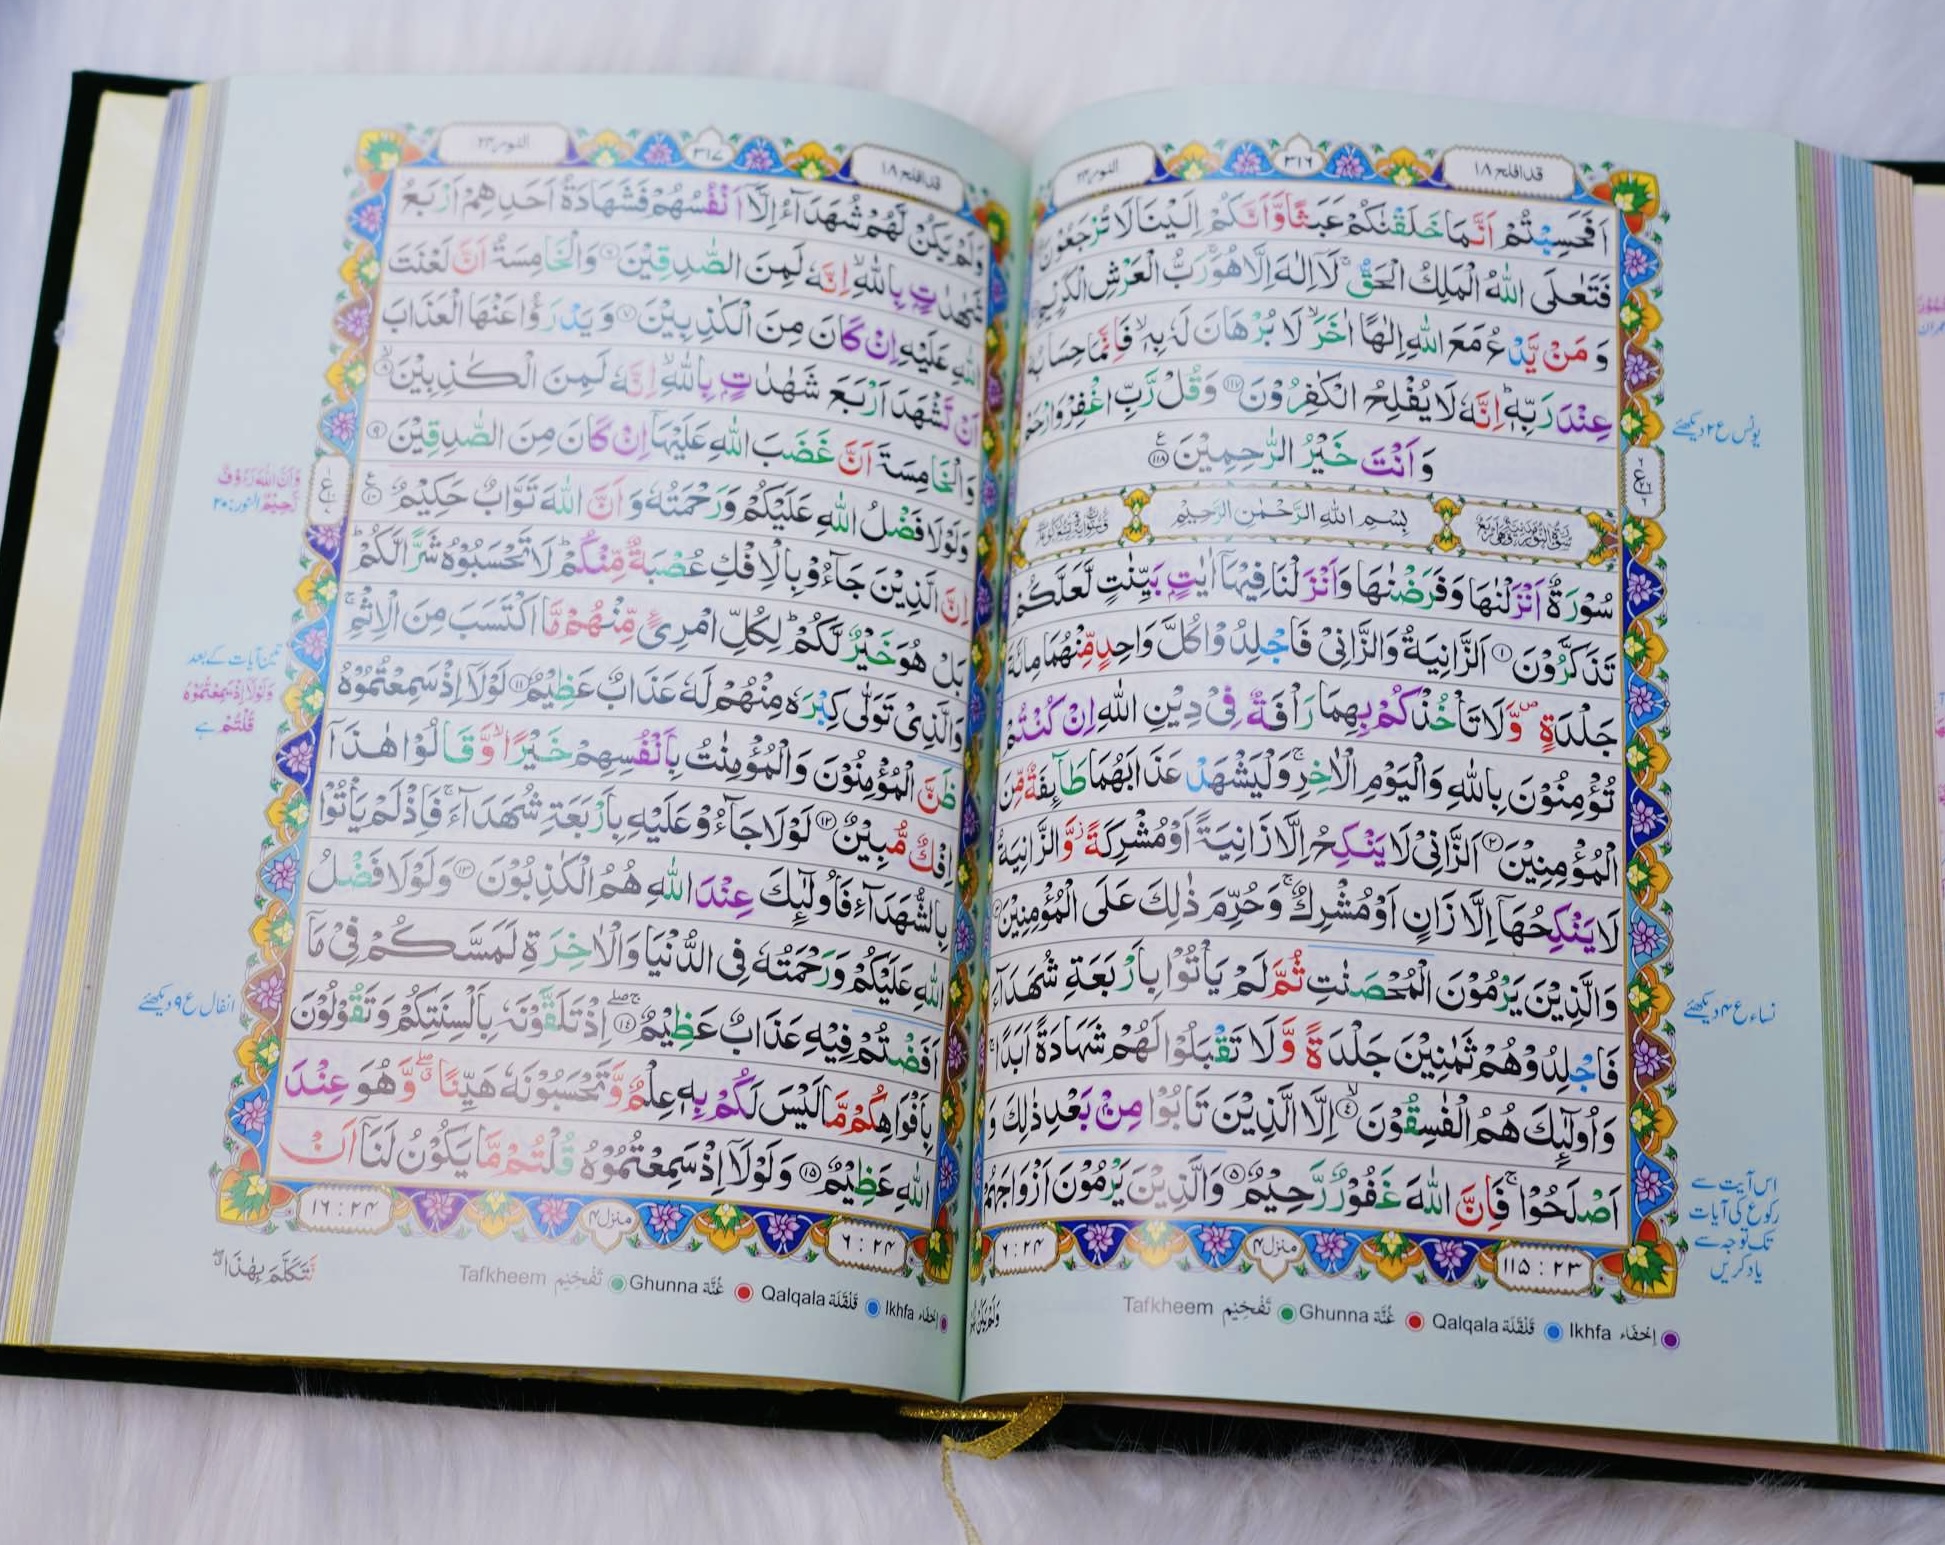 قد افلح ١٨
٣١٦
النور ٢٤
اَفَحَسِبْتُمْ اَنَّمَا خَلَقْنٰكُمْ عَبَثًا وَّاَنَّكُمْ اِلَيْنَا لَا تُرْجَعُوْنَ
فَتَعٰلَى اللّٰهُ الْمَلِكُ الْحَقُّ ۚ لَاۤ اِلٰهَ اِلَّا هُوَ ۚ رَبُّ الْعَرْشِ الْكَرِيْمِ
وَ مَنْ يَّدْعُ مَعَ اللّٰهِ اِلٰهًا اٰخَرَ ۙ لَا بُرْهَانَ لَهٗ بِهٖ ۙ فَاِنَّمَا حِسَابُهٗ
عِنْدَ رَبِّهٖ ؕ اِنَّهٗ لَا يُفْلِحُ الْكٰفِرُوْنَ ۝۱۱۷ وَقُلْ رَّبِّ اغْفِرْ وَارْحَمْ
وَ اَنْتَ خَيْرُ الرّٰحِمِيْنَ ۝۱۱۸
بِسْمِ اللّٰهِ الرَّحْمٰنِ الرَّحِيْمِ
سُوْرَةٌ اَنْزَلْنٰهَا وَفَرَضْنٰهَا وَاَنْزَلْنَا فِيْهَاۤ اٰيٰتٍۭ بَيِّنٰتٍ لَّعَلَّكُمْ
تَذَكَّرُوْنَ ۝۱ اَلزَّانِيَةُ وَالزَّانِيْ فَاجْلِدُوْا كُلَّ وَاحِدٍ مِّنْهُمَا مِائَةَ
جَلْدَةٍ ۪ وَّلَا تَاْخُذْكُمْ بِهِمَا رَاْفَةٌ فِيْ دِيْنِ اللّٰهِ اِنْ كُنْتُمْ
تُؤْمِنُوْنَ بِاللّٰهِ وَالْيَوْمِ الْاٰخِرِ ۚ وَلْيَشْهَدْ عَذَابَهُمَا طَآئِفَةٌ مِّنَ
الْمُؤْمِنِيْنَ ۝۲ اَلزَّانِيْ لَا يَنْكِحُ اِلَّا زَانِيَةً اَوْ مُشْرِكَةً ؗ وَّالزَّانِيَةُ
لَا يَنْكِحُهَاۤ اِلَّا زَانٍ اَوْ مُشْرِكٌ ۚ وَحُرِّمَ ذٰلِكَ عَلَى الْمُؤْمِنِيْنَ
وَالَّذِيْنَ يَرْمُوْنَ الْمُحْصَنٰتِ ثُمَّ لَمْ يَاْتُوْا بِاَرْبَعَةِ شُهَدَآءَ
فَاجْلِدُوْهُمْ ثَمٰنِيْنَ جَلْدَةً وَّ لَا تَقْبَلُوْا لَهُمْ شَهَادَةً اَبَدًا ۚ
وَاُولٰٓئِكَ هُمُ الْفٰسِقُوْنَ ۝۴ۙ اِلَّا الَّذِيْنَ تَابُوْا مِنْۢ بَعْدِ ذٰلِكَ وَ
اَصْلَحُوْا ۚ فَاِنَّ اللّٰهَ غَفُوْرٌ رَّحِيْمٌ ۝۵ وَالَّذِيْنَ يَرْمُوْنَ اَزْوَاجَهُمْ
۲۳ : ۱۱۵
منزل ۴
۲۴ : ۶
Tafkheem تَفْخِيْم Ghunna غُنَّة Qalqala قَلْقَلَة Ikhfa اِخْفَاء
یونس ع ۲ دیکھئے
نساء ع ۴ دیکھئے
اس آیت سے
رکوع کی آیات
تک توجہ سے
یاد کریں
قد افلح ١٨
٣١٧
النور ٢٤
وَلَمْ يَكُنْ لَّهُمْ شُهَدَآءُ اِلَّاۤ اَنْفُسُهُمْ فَشَهَادَةُ اَحَدِهِمْ اَرْبَعُ
شَهٰدٰتٍۭ بِاللّٰهِ ۙ اِنَّهٗ لَمِنَ الصّٰدِقِيْنَ ۝۶ وَالْخَامِسَةُ اَنَّ لَعْنَتَ
اللّٰهِ عَلَيْهِ اِنْ كَانَ مِنَ الْكٰذِبِيْنَ ۝۷ وَيَدْرَؤُا عَنْهَا الْعَذَابَ
اَنْ تَشْهَدَ اَرْبَعَ شَهٰدٰتٍۭ بِاللّٰهِ ۙ اِنَّهٗ لَمِنَ الْكٰذِبِيْنَ ۝۸ۙ
وَالْخَامِسَةَ اَنَّ غَضَبَ اللّٰهِ عَلَيْهَاۤ اِنْ كَانَ مِنَ الصّٰدِقِيْنَ ۝۹
وَلَوْلَا فَضْلُ اللّٰهِ عَلَيْكُمْ وَرَحْمَتُهٗ وَ اَنَّ اللّٰهَ تَوَّابٌ حَكِيْمٌ ۝۱۰
اِنَّ الَّذِيْنَ جَآءُوْ بِالْاِفْكِ عُصْبَةٌ مِّنْكُمْ ؕ لَا تَحْسَبُوْهُ شَرًّا لَّكُمْ ؕ
بَلْ هُوَ خَيْرٌ لَّكُمْ ؕ لِكُلِّ امْرِئٍ مِّنْهُمْ مَّا اكْتَسَبَ مِنَ الْاِثْمِ ۚ
وَالَّذِيْ تَوَلّٰى كِبْرَهٗ مِنْهُمْ لَهٗ عَذَابٌ عَظِيْمٌ ۝۱۱ لَوْلَاۤ اِذْ سَمِعْتُمُوْهُ
ظَنَّ الْمُؤْمِنُوْنَ وَالْمُؤْمِنٰتُ بِاَنْفُسِهِمْ خَيْرًا ۙ وَّقَالُوْا هٰذَاۤ
اِفْكٌ مُّبِيْنٌ ۝۱۲ لَوْلَا جَآءُوْ عَلَيْهِ بِاَرْبَعَةِ شُهَدَآءَ ۚ فَاِذْ لَمْ يَاْتُوْا
بِالشُّهَدَآءِ فَاُولٰٓئِكَ عِنْدَ اللّٰهِ هُمُ الْكٰذِبُوْنَ ۝۱۳ وَلَوْلَا فَضْلُ
اللّٰهِ عَلَيْكُمْ وَرَحْمَتُهٗ فِي الدُّنْيَا وَالْاٰخِرَةِ لَمَسَّكُمْ فِيْ مَاۤ
اَفَضْتُمْ فِيْهِ عَذَابٌ عَظِيْمٌ ۝۱۴ اِذْ تَلَقَّوْنَهٗ بِاَلْسِنَتِكُمْ وَتَقُوْلُوْنَ
بِاَفْوَاهِكُمْ مَّا لَيْسَ لَكُمْ بِهٖ عِلْمٌ وَّتَحْسَبُوْنَهٗ هَيِّنًا ۖ وَّ هُوَ عِنْدَ
اللّٰهِ عَظِيْمٌ ۝۱۵ وَلَوْلَاۤ اِذْ سَمِعْتُمُوْهُ قُلْتُمْ مَّا يَكُوْنُ لَنَاۤ اَنْ
۲۴ : ۶
منزل ۴
۲۴ : ۱۶
نَّتَكَلَّمَ بِهٰذَا
Tafkheem تَفْخِيْم Ghunna غُنَّة Qalqala قَلْقَلَة Ikhfa اِخْفَاء
وَاَنَّ اللّٰهَ رَءُوْفٌ
رَّحِيْمٌ النور: ۲۰
تین آیات کے بعد
وَلَوْلَاۤ اِذْ سَمِعْتُمُوْهُ
قُلْتُمْ ہے
انفال ع ۹ دیکھئے